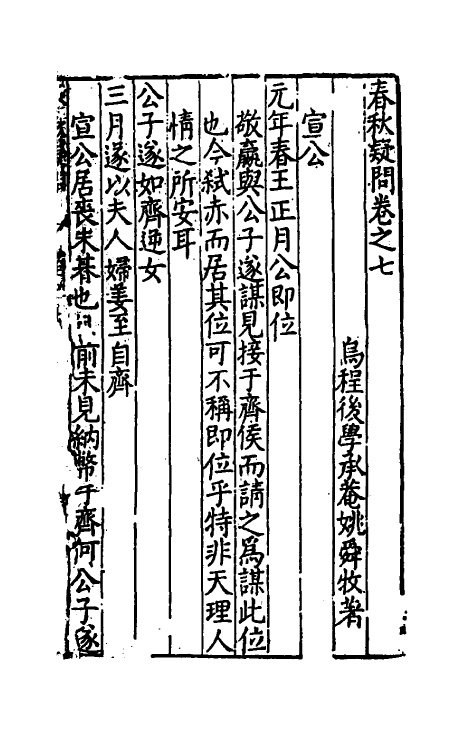 春秋疑問卷之七
烏程後學承菴姚舜牧著
宣公
元年春王正月公即位
敬嬴與公子遂謀見接于齊侯而請之爲謀此位
也今弑赤而居其位可不稱即位乎特非天理人
情之所安耳
公子遂如齊逆女
三月遂以夫人婦姜至自齊
宣公居喪未朞也前未見納幣于齊何公子遂